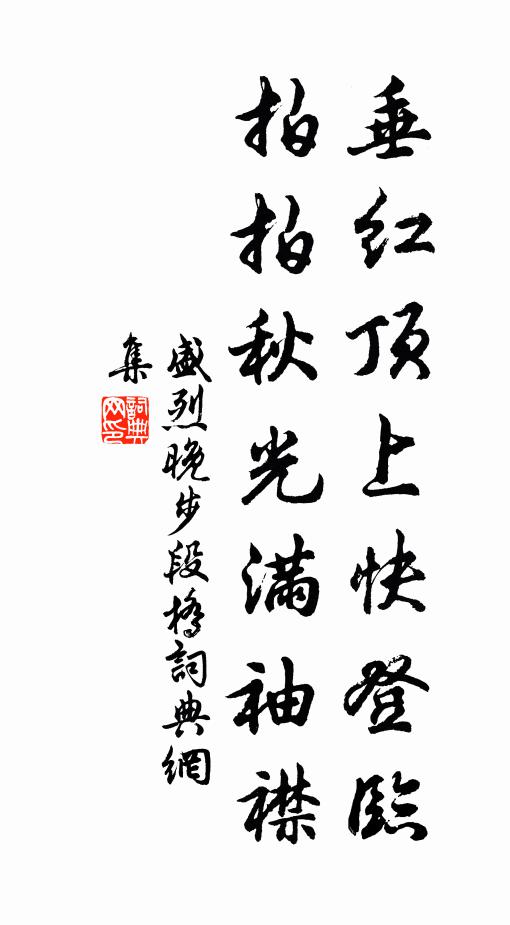 垂红顶上快登临
拍拍秋光满袖襟
盛烈晚步段橋詞典網
集
詞典
网印